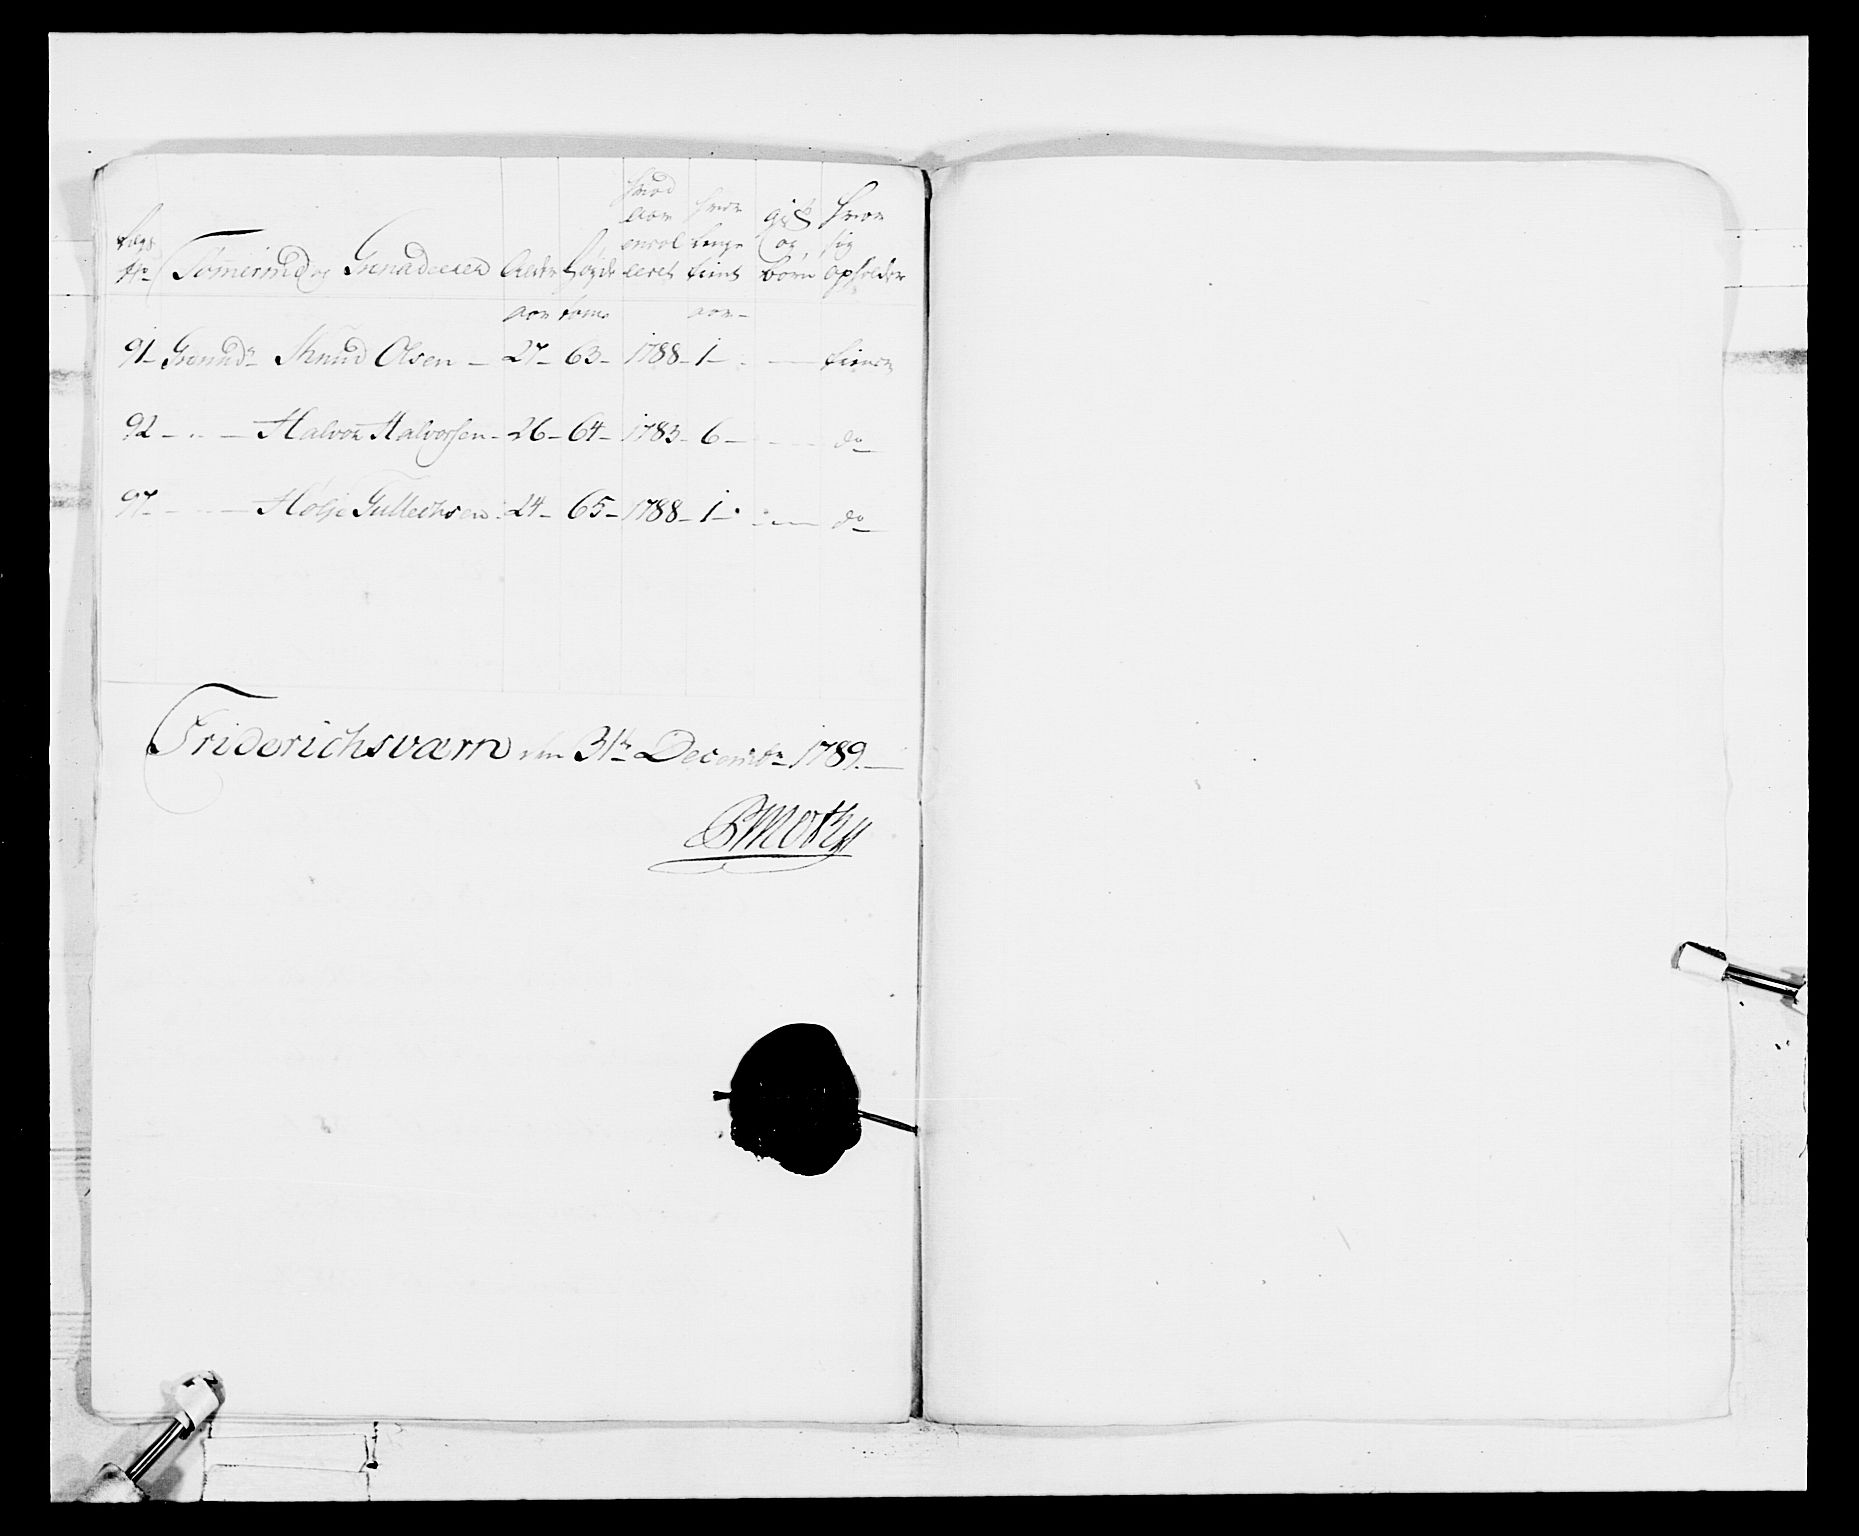 Lægs No Tömermd og Grenaderer Alder Høyde hvad aar enrolleret hvor længe tient gift og børn hvor sig opholder
aar tom. aar
91 Grenadr Knud Olsen 27 63 1788 1 tiener
92 Halvor Halvorsen 26 64 1783 6 do
97 Holje Tullechsen 24 65 1788 1 do
Friderichsværn den 31te Decembr 1789.